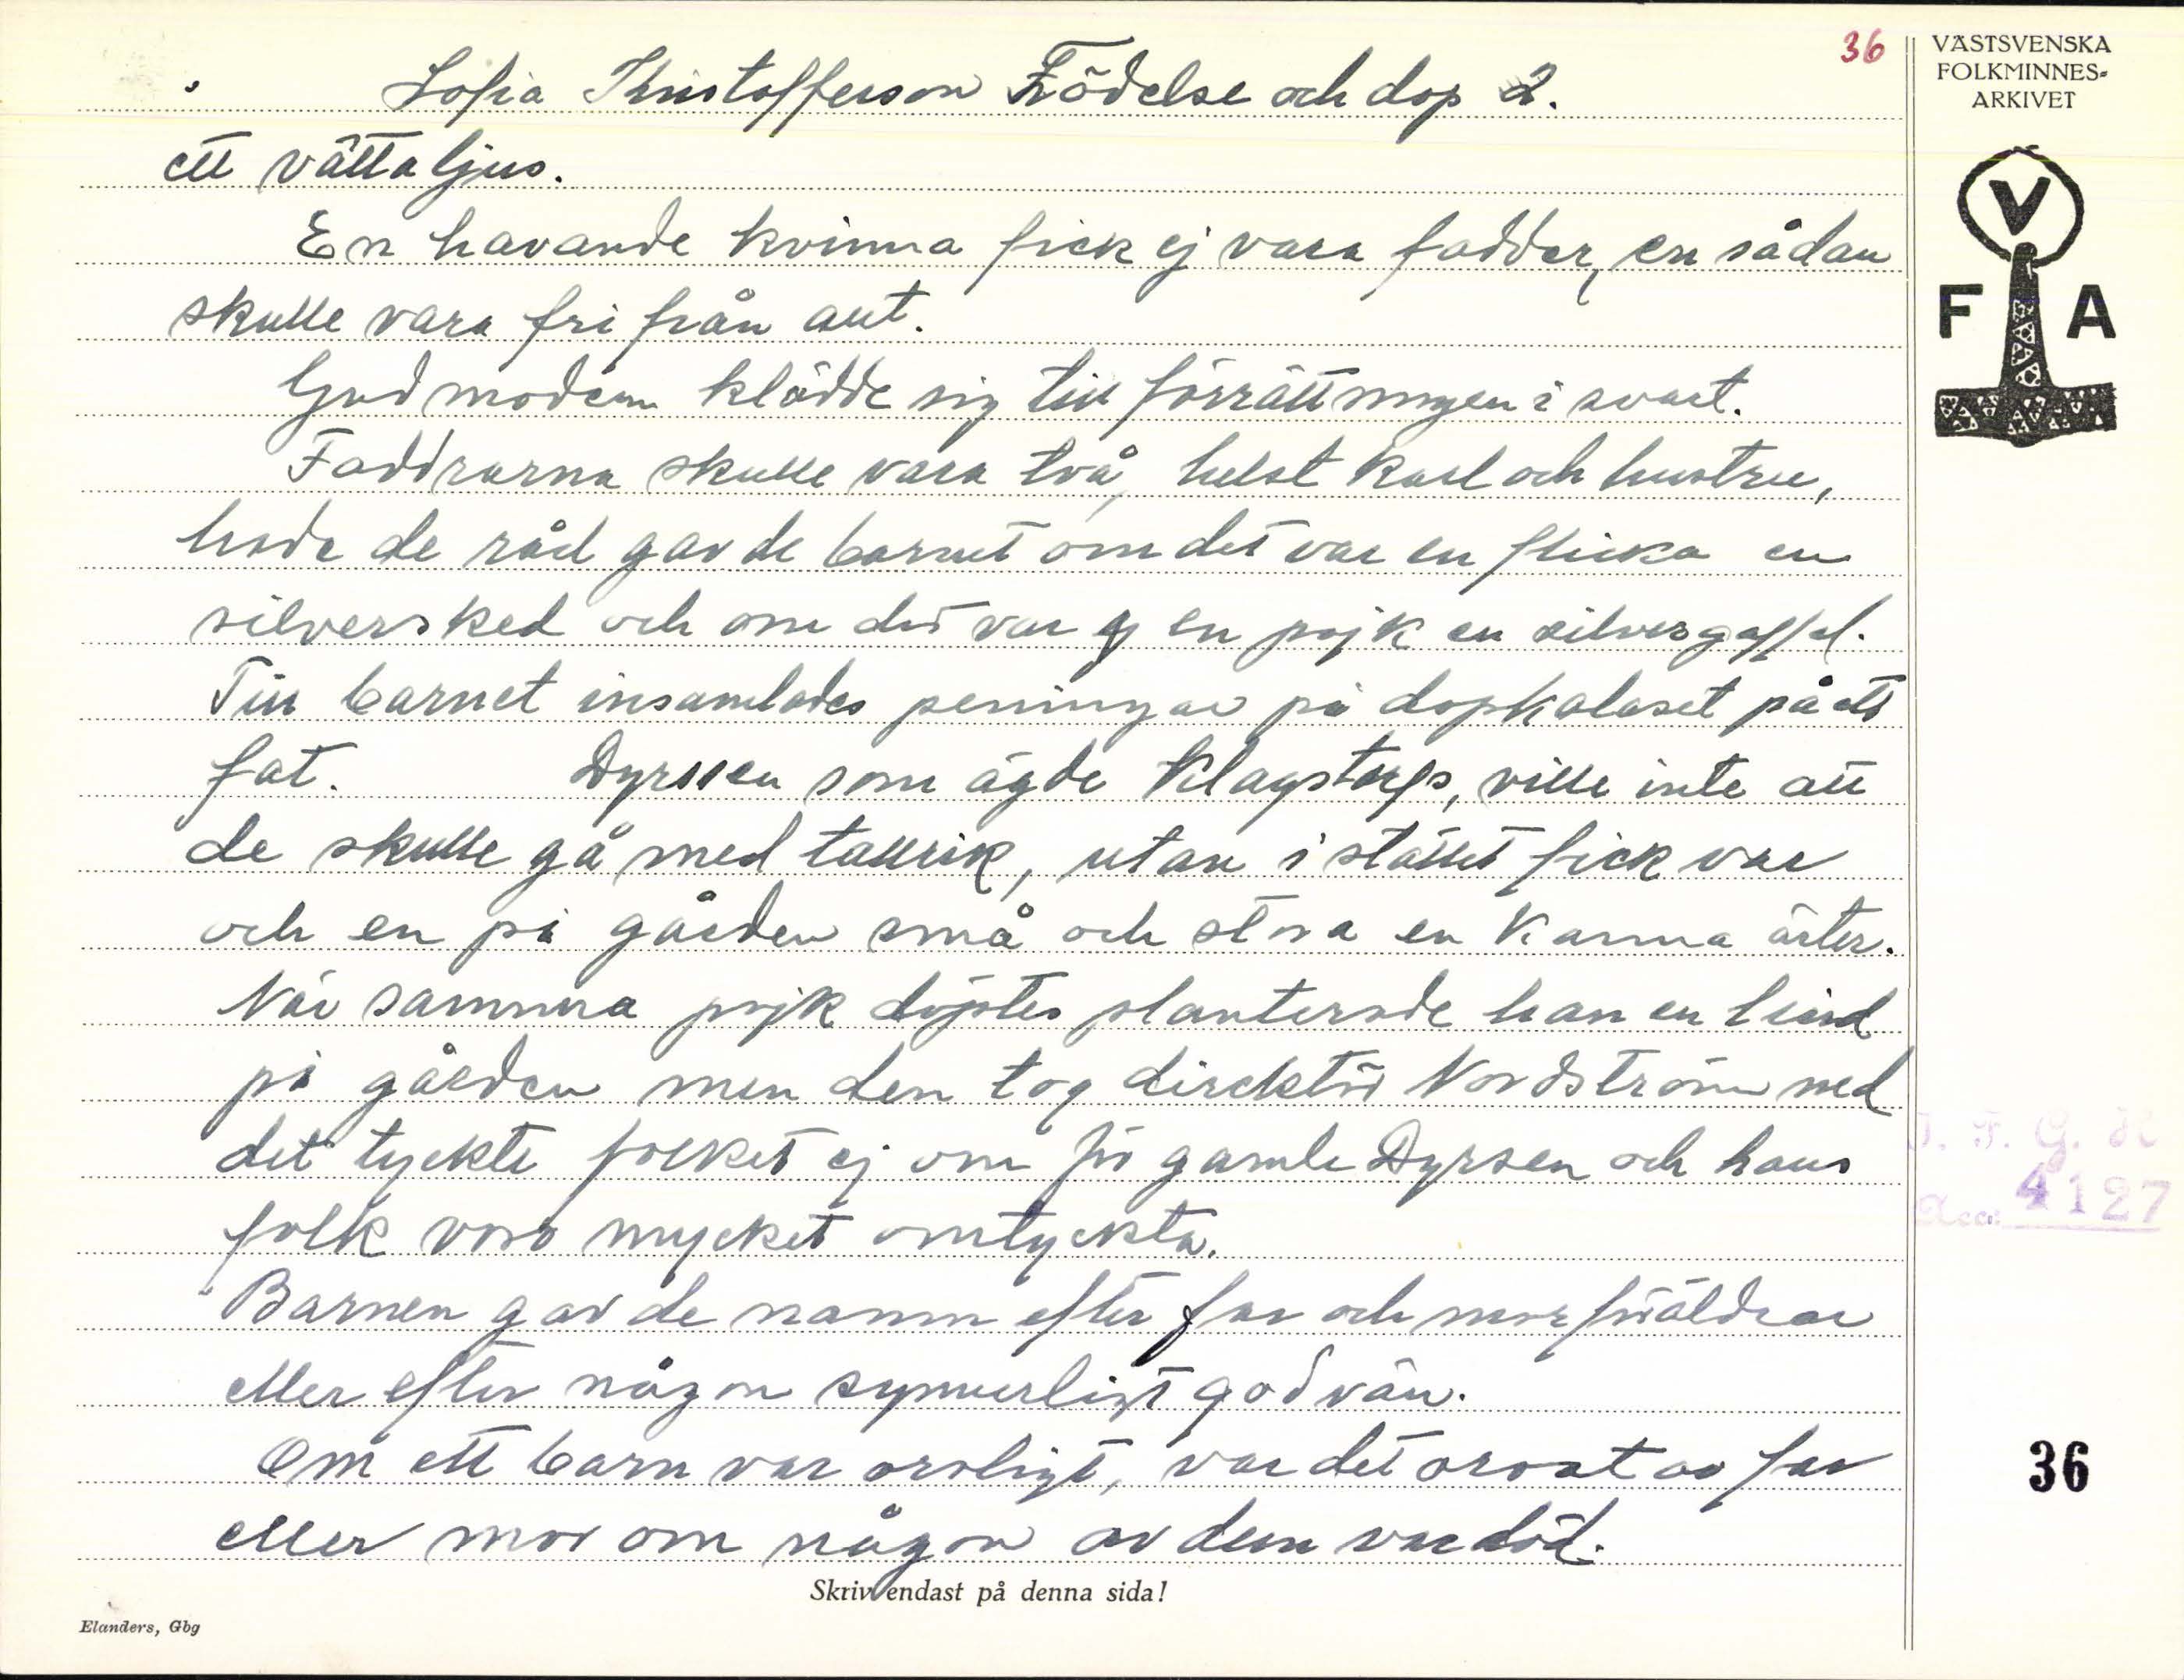 36
VÄSTSVENSKA
FOLKMINNES=
ARKIVET
V
F A
Sofia Kristofferson Födelse och dop 2.
ett vättaljus.
En havande kvinna fick ej vara fadder, en sådan
skulle vara fri från allt.
Gudmodern klädde sig till förrättningen i svart.
Faddrarna skulle vara två, helst karl och hustru,
hade de råd gav de barnet om det var en flicka en
silversked och om det var en pojk en silvergaffel.
Till barnet insamlades penningar på dopkalaset på ett
fat. Dyrssen som ägde Klagstorps, ville inte att
de skulle gå med tallrik, utan i stället fick var
och en på gården små och stora en kanna ärter.
När samma pojk döptes planterade han en lind
på gården men den tog direktör Nordström ned
det tyckte folket ej om för gamle Dyrsen och hans
folk voro mycket omtyckta.
Barnen gav de namn efter far och morföräldrar
eller efter någon synnerligt god vän.
Om ett barn var oroligt, var det oroat av far
eller mor om någon av dem var död.
I. F. G. H
Acc: 4127
36
Skriv endast på denna sida!
Elanders, Gbg